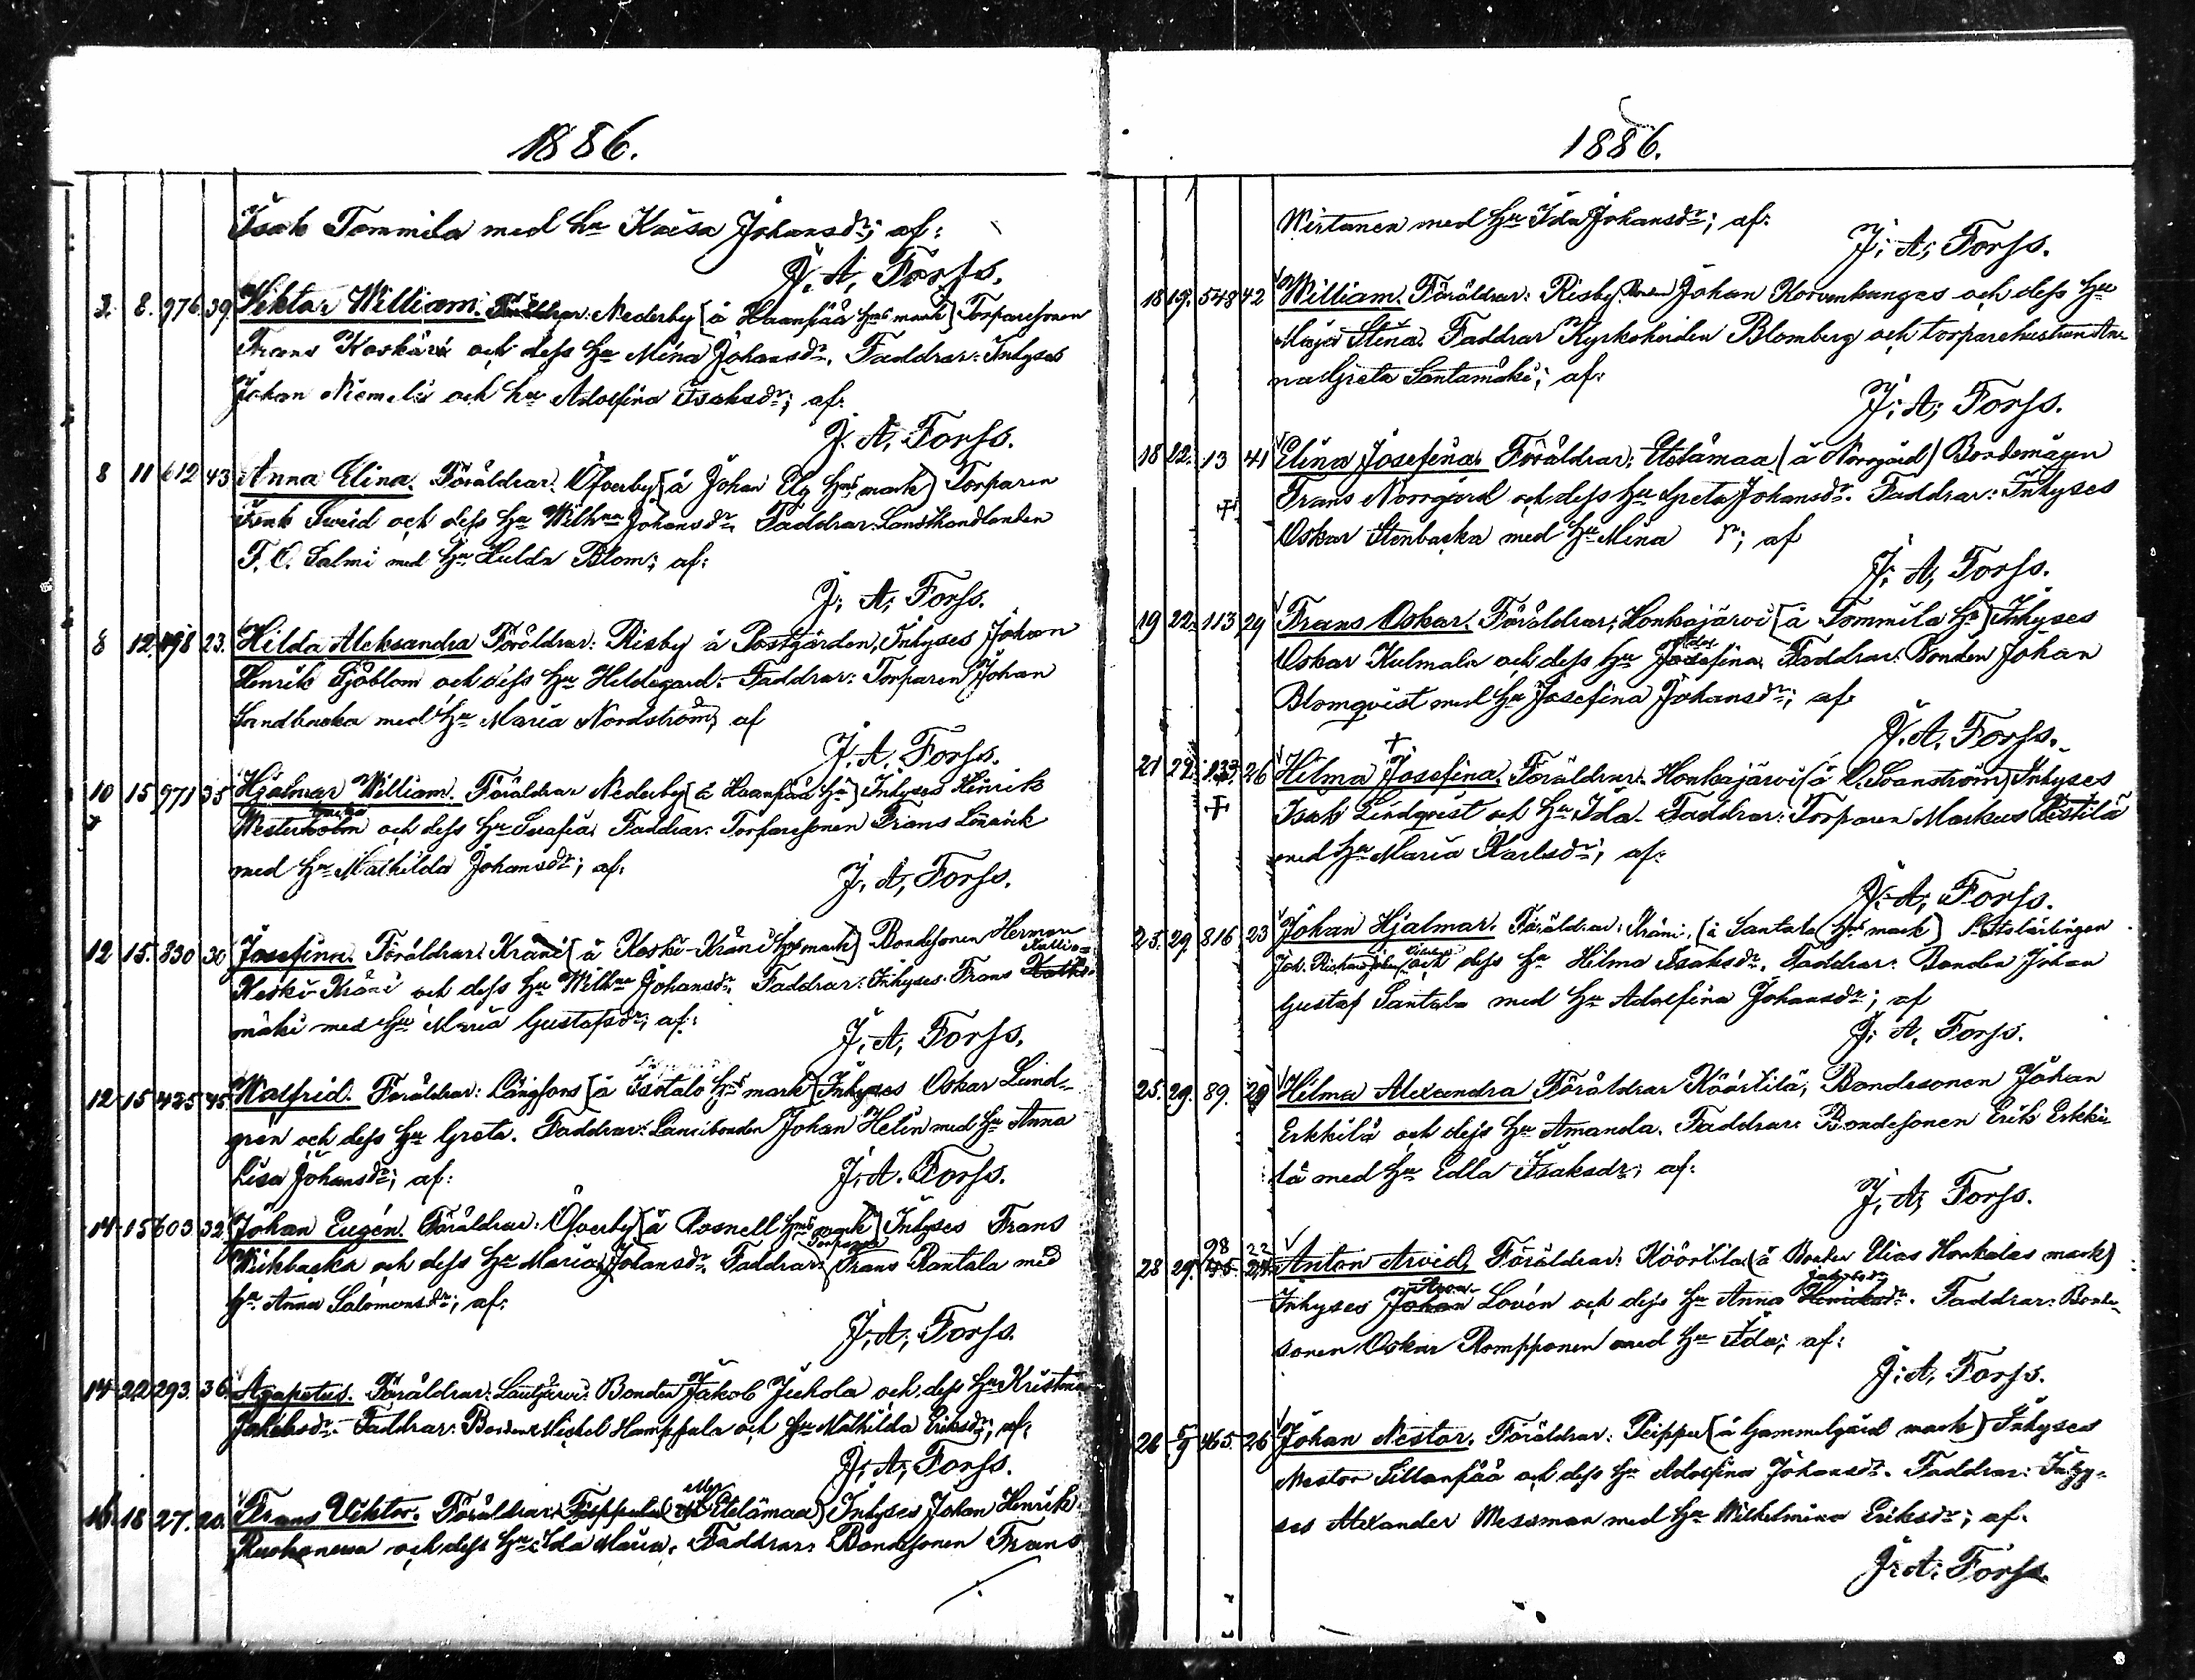 1886.
Isak Tommila med Hu Kaisa Johansdr; af:
J. A. Forss.
3. 8. 976 39 Viktor William. Föräldrar: Nederby (å Haanpää Hms mark) Torparesonen
Frans Koskari och dess Hu Mina Johansdr. Faddrar: Inhyses
Johan Niemelä och hu Adolfina Isaksdr; af:
J. A. Forss.
8 11 612 43 Anna Elina. Föräldrar: Öfverby (å Johan Elg Hms mark) Torparen
Isak Sweid och dess Hu Wilhna Johansdr. Faddrar: Landthandlanden
F. O. Salmi med Hu Hulda Blom; af:
J. A. Forss.
8 12. 498 23. Hilda Aleksandra Föräldrar: Risby å Postgården, Inhyses Johan
Henrik Sjöblom och dess Hu Hildegard. Faddrar: Torparen Johan
Sandbacka med Hu Maria Nordström; af
J. A. Forss.
10 15 971 35 Hjalmar William. Föräldrar Nederby (å Haanpää Hu) Inhyses Henrik
Westerholm och dess Hu Serafia Faddrar: Torparesonen Frans
med Hu Mathilda Johansdr; af.
J. A. Forss.
12 15. 830 30 Josefina. Föräldrar: Kräni (å Keski-Kräni Hms mark) Bondesonen Herman
Kallio-
Keski-Kräni och dess Hu Wilhna Johansdr. Faddrar: Inhyses Frans
mäki med Hu Maria Gustafsdr; af:
J. A. Forss.
12 15 425 45 Walfrid. Föräldrar: Långfors (å Isotalo Hms mark) Inhyses Oskar Lund-
gren och dess Hu Greta. Faddrar: Johan Helin med Hu Anna
Lisa Johansdr; af:
J. A. Forss.
14 15 603 32 Johan Eugén. Föräldrar: Öfverby (å Rosnell Hms mark) Inhyses Frans
Torparen
Wikbacka och dess Hu Maria Johansdr. Faddrar: Frans Rantala med
Hu Anna Salomonsdr; af:
J. A. Forss.
14 22 293. 36 Agapetus. Föräldrar: Lautjärvi: Bonden Jakob Juhola och dess Hu Kristina
Jakobsdr. Faddrar: Bonden Michel Hamppula och Hu Mathilda Eriksdr; af:
J. A. Forss.
16 18 27. 20. Frans Viktor. Föräldrar: Etelämaa) Inhyses Johan Henrik
och dess Hu Ida Maria. Faddrar: Bondesonen Frans
1886.
Wirtanen med Hu Ida Johansdr; af:
J. A. Forss.
18 19. 548 42 William. Föräldrar: Risby, Bonden Johan Korvenkangas och dess Hu
Maja Stina. Faddrar Kyrkoherden Blomberg och torparehustrun An-
na Greta Santamäki; af:
J. A. Forss.
18 22. 13 41 Elina Josefina. Föräldrar: Etelämaa (å Norrgård) Bondemågen
Frans Norrgård och dess Hu Greta Johansdr. Faddrar: Inhyses
Oskar Stenbacka med Hu Mina dr; af
J. A. Forss.
19 22. 113 29 Frans Oskar. Föräldrar: Honkajärvi (å Tommila Hu) Inhyses
Oskar Kulmala och dess Hu Josefina. Faddrar: Bonden Johan
Blomqvist med Hu Josefina Johansdr; af
J. A. Forss.
21 22. 133 26 Hilma Josefina. Föräldrar: Honkajärvi (å Svanström) Inhyses
Isak Lindqvist och Hu Ida. Faddrar: Torparen Markus Ristilä
med Hu Maria Karlsdr; af:
J. A. Forss.
25. 29. 816 23 Johan Hjalmar. Föräldrar: Kräni. (å Santala Hms mark)
och dess Hu Hilma Isaksdr. Faddrar: Bonden Johan
Gustaf Santala med Hu Adolfina Johansdr; af
J. A. Forss.
25. 29. 89. 29 Hilma Alexandra Föräldrar Köörtilä, Bondesonen Johan
Erkkilä och dess Hu Amanda. Faddrar: Bondesonen Erik Erkki-
lä med Hu Edla Isaksdr; af:
J. A. Forss.
28 29. 98 22 Anton Arvid. Föräldrar: Köörtilä (å Bonden Elias Honkalas mark)
Jakobsdr
Inhyses Johan Lovén och dess Hu Anna Henriksdr. Faddrar: Bonde-
sonen Oskar Rompponen med Hu Ida; af:
J. A. Forss.
26 5/9 465. 26 Johan Nestor. Föräldrar: Peippu (å Gammelgård mark) Inhyses
Nestor Sillanpää och dess Hu Adolfina Johansdr. Faddrar: Inhy-
ses Alexander Messman med Hu Wilhelmina Eriksdr; af.
J. A. Forss.